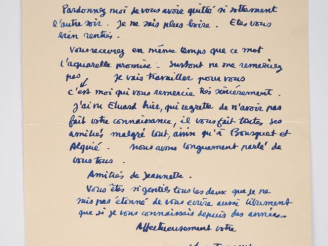 Pardonnez moi de vous avoir quitté si sottement
l'autre soir. Je ne sais plus boire. Etes vous
bien rentrés.
Vous recevrez en même temps que ce mot
l'aquarelle promise - Surtout ne me remerciez
pas. Je vais travailler pour vous
c'est moi qui vous remercie très sincèrement.
J'ai vu Eluard hier, qui regrette de n'avoir pas
fait votre connaissance, il vous fait toutes ses
amitiés malgré tout, ainsi qu'à Bousquet et
Alquié. Nous avons longuement parlé de
vous tous.
Amitiés de Jeannette.
Vous êtes si gentils tous les deux que je ne
suis pas étonné de vous écrire aussi librement
que si je vous connaissais depuis des années.
Affectueusement votre